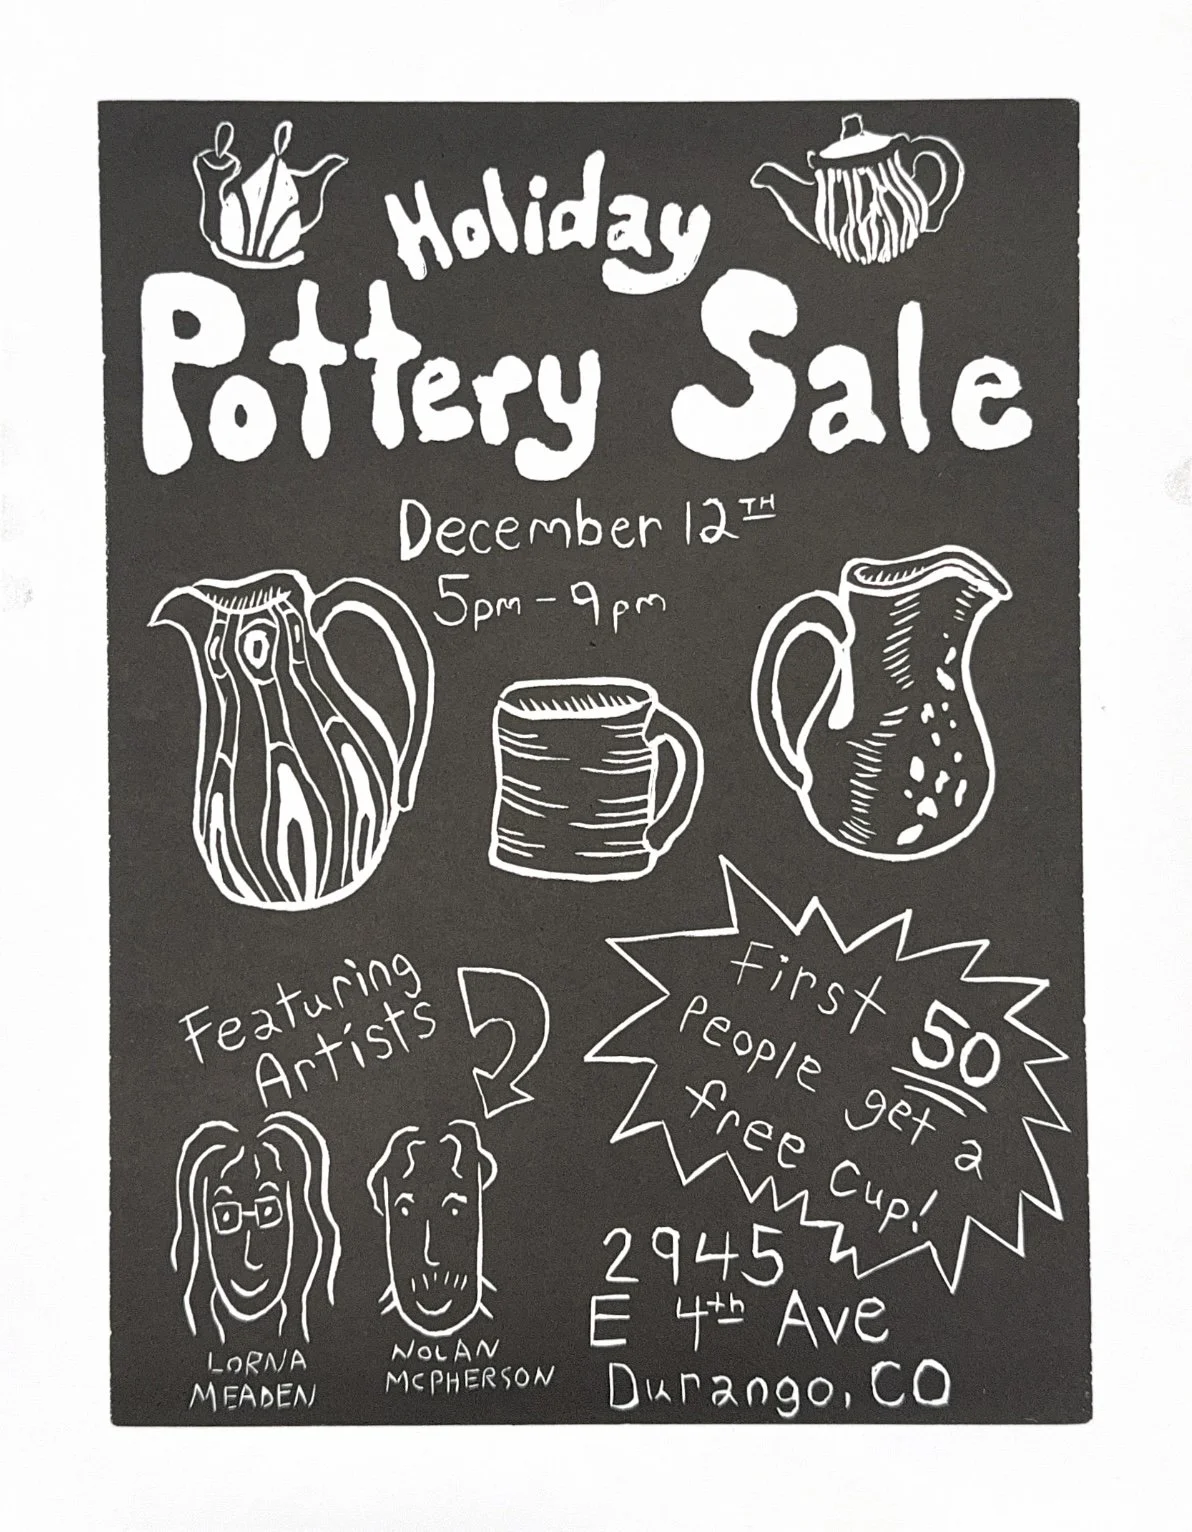 Holiday
Pottery Sale
December 12TH
5pm - 9pm
Featuring
Artists
LORNA
MEADEN
NOLAN
MCPHERSON
First 50
people get a
free Cup!
2945
E 4th Ave
Durango, CO